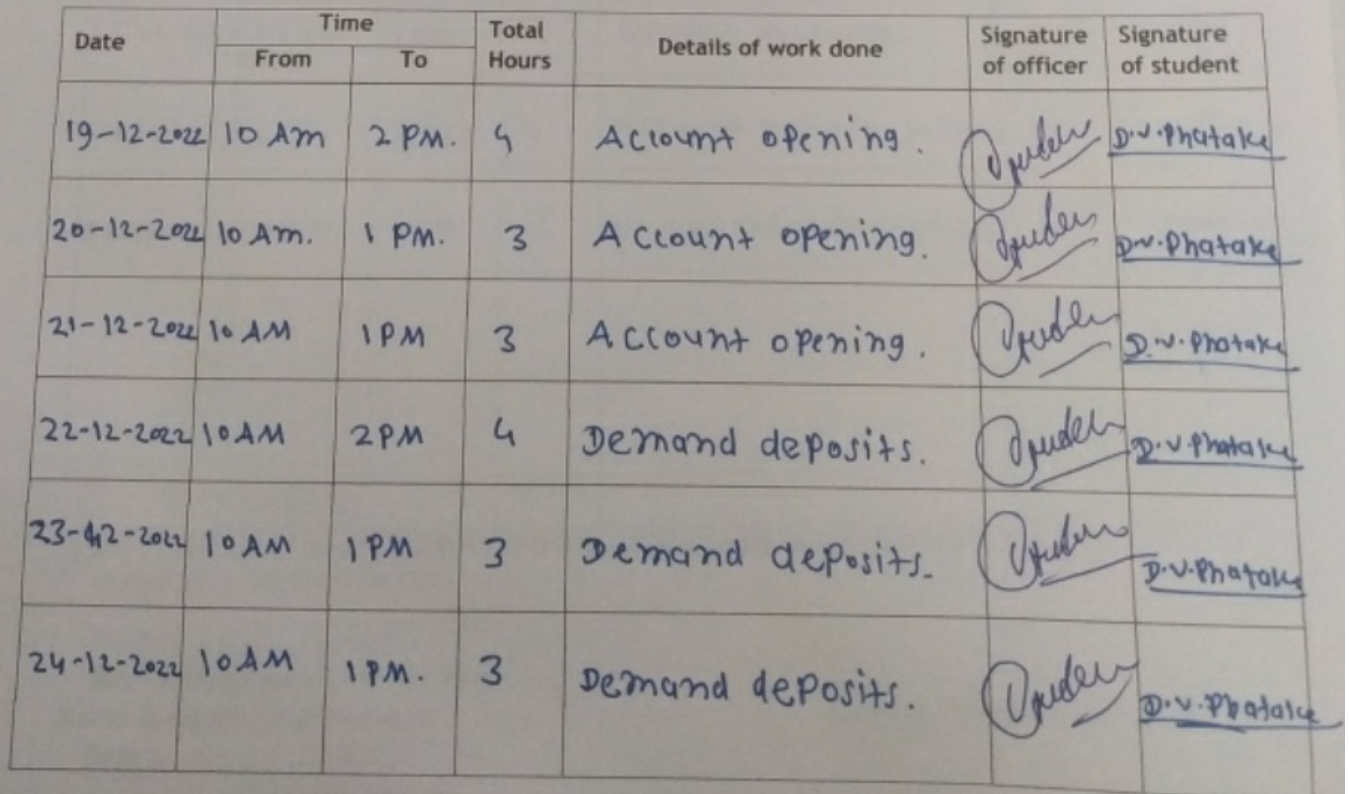 Date Time Total Hours Details of work done Signature of officer Signature of student
From To
19-12-2022 10 AM 2 PM. 4 Account opening. D.V.Phatake
20-12-2022 10 Am. 1 PM. 3 Account opening. D.V.Phatake
21-12-2022 10 AM 1 PM 3 Account opening. D.V.Phatake
22-12-2022 10 AM 2 PM 4 Demand deposits. D.V.Phatake
23-12-2022 10 AM 1 PM 3 Demand deposits. D.V.Phatake
24-12-2022 10 AM 1 PM. 3 Demand deposits. D.V.Phatake